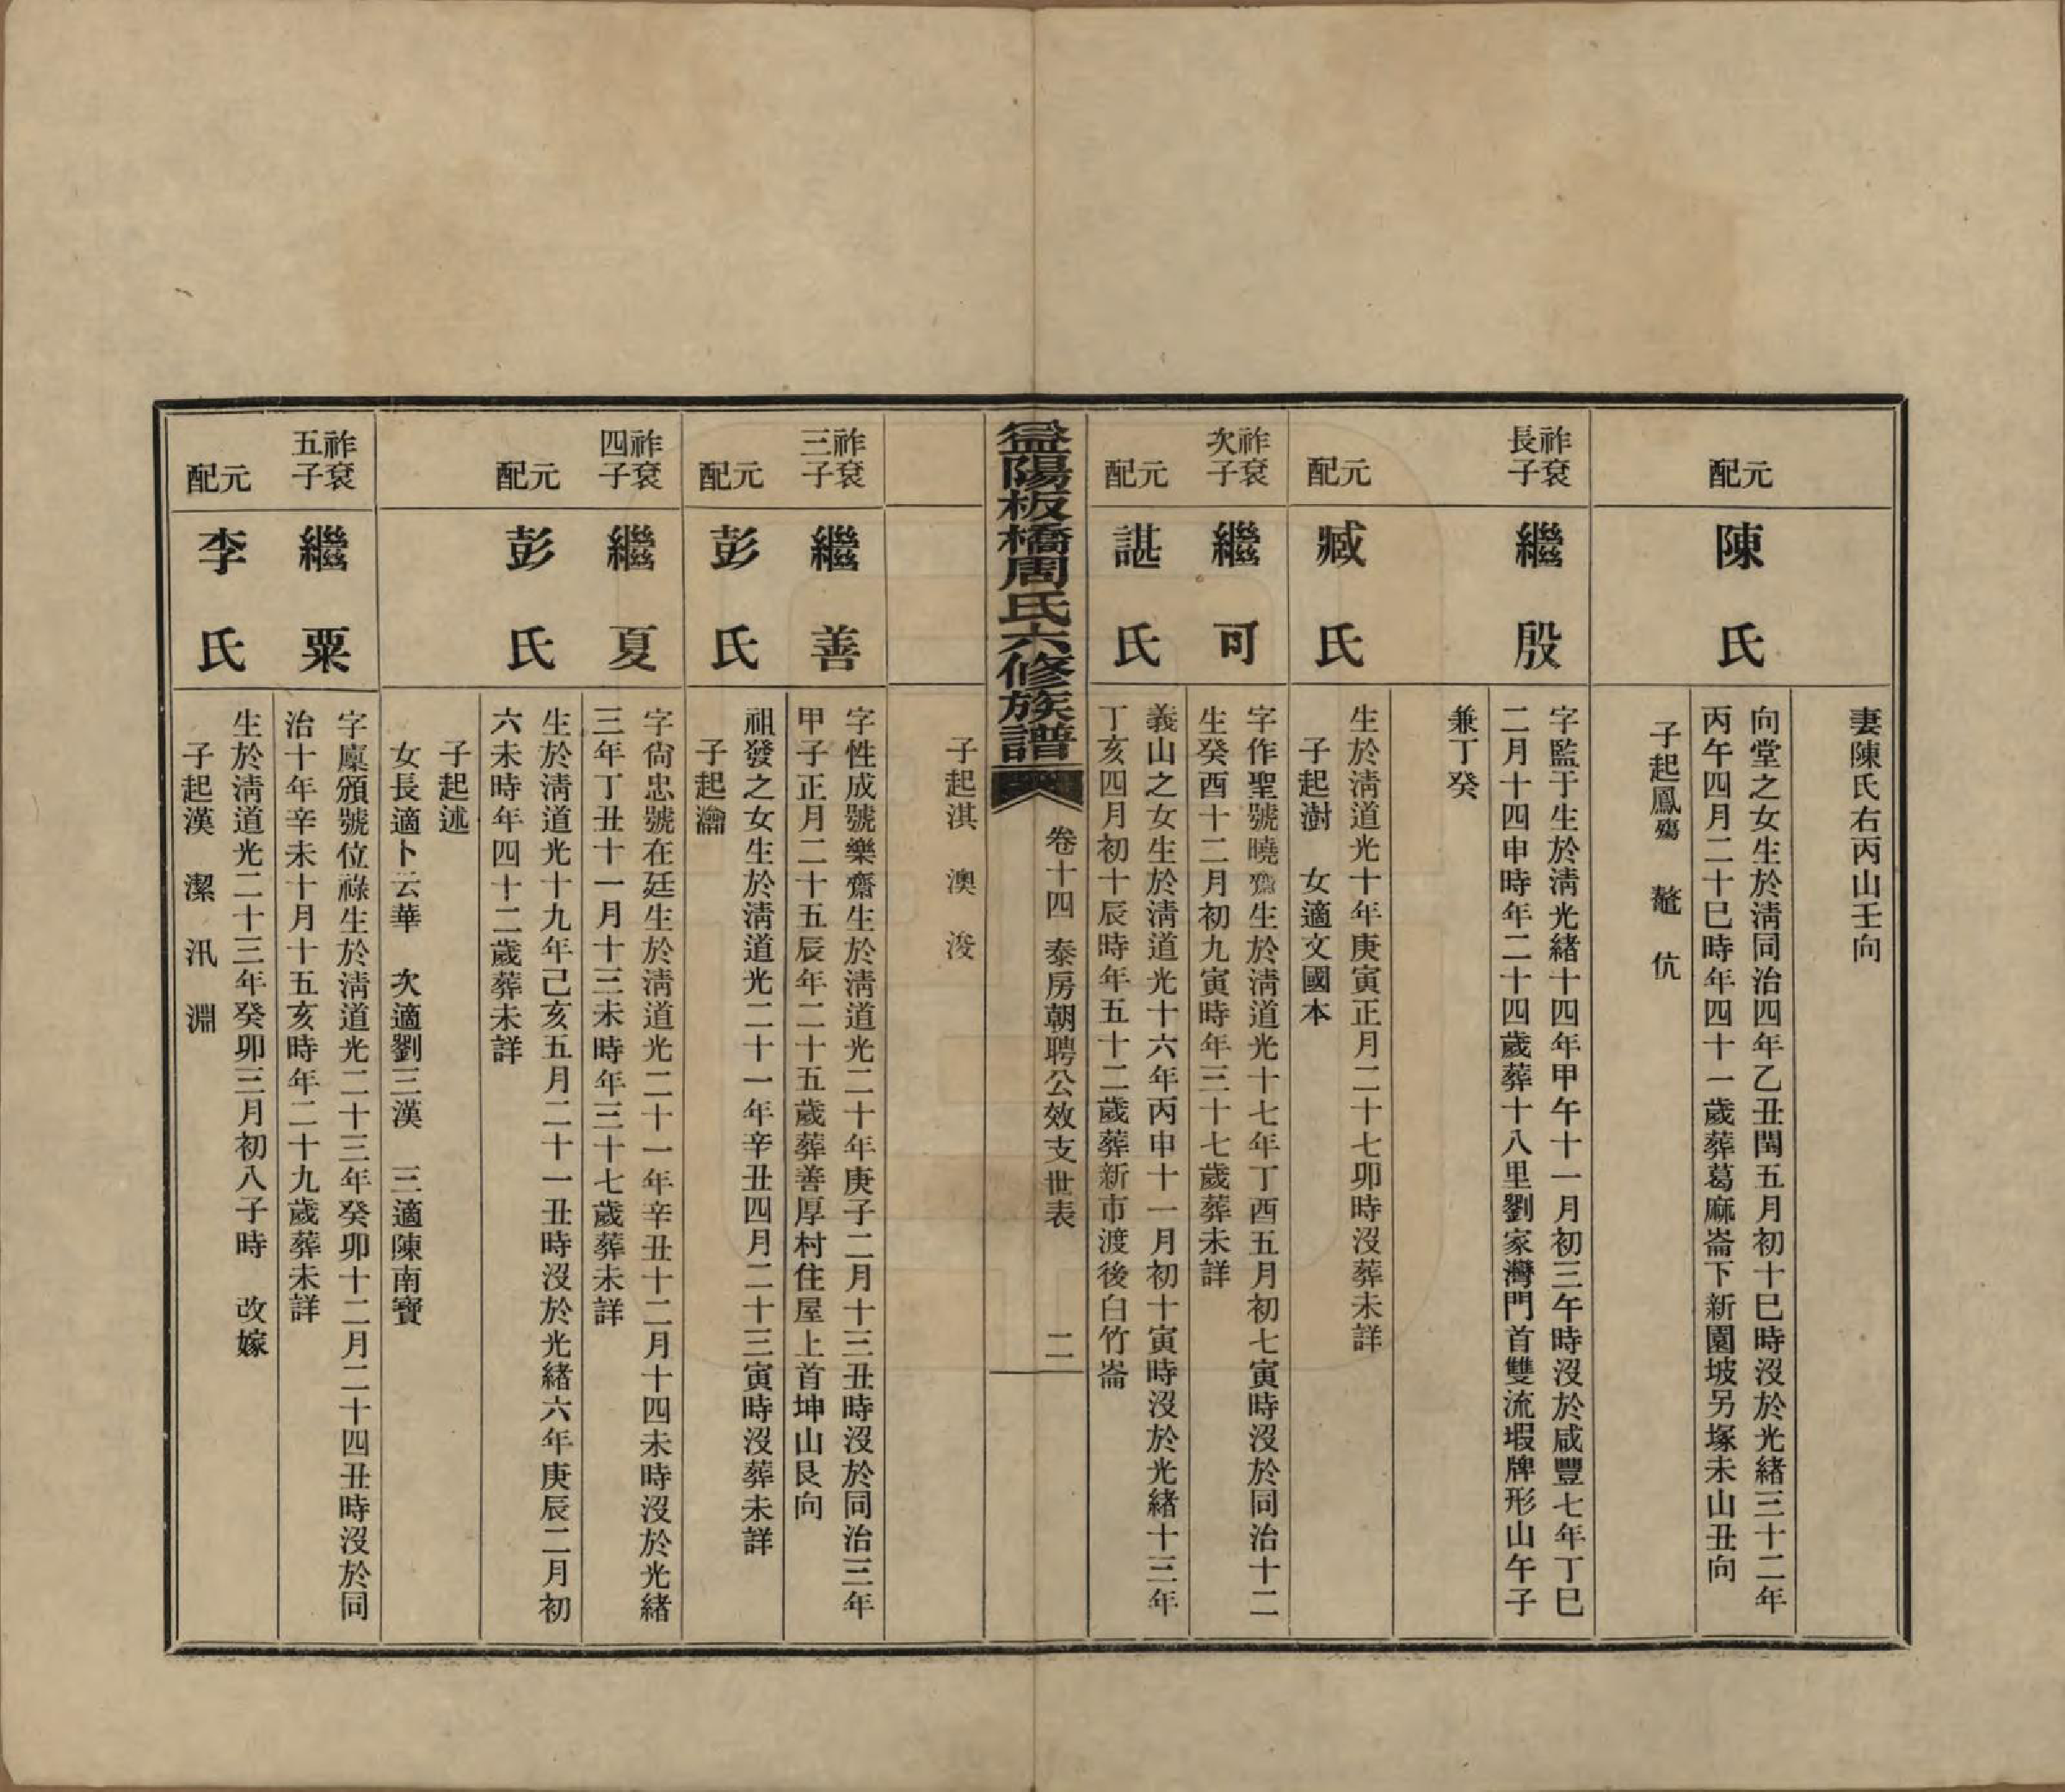 妻陳氏右丙山壬向
元配
陳氏
向堂之女生於淸同治四年乙丑閏五月初十巳時沒於光緒三十二年
丙午四月二十巳時年四十一歲葬葛麻崙下新園坡另塚未山丑向
子起鳳殤　鼇　伉
祚袞長子
繼殷
字監于生於淸光緒十四年甲午十一月初三午時沒於咸豐七年丁巳
二月十四申時年二十四歲葬十八里劉家灣門首雙流堰牌形山午子
兼丁癸
元配
臧氏
生於淸道光十年庚寅正月二十七卯時沒葬未詳
子起澍　女適文國本
祚袞次子
繼可
字作聖號曉齋生於淸道光十七年丁酉五月初七寅時沒於同治十二
生癸酉十二月初九寅時年三十七歲葬未詳
元配
諶氏
義山之女生於淸道光十六年丙申十一月初十寅時沒於光緒十三年
丁亥四月初十辰時年五十二歲葬新市渡後白竹崙
益陽板橋周氏六修族譜
卷十四　泰房朝聘公效支世表　二
子起淇　澳　浚
祚袞三子
繼善
字性成號樂齋生於淸道光二十年庚子二月十三丑時沒於同治三年
甲子正月二十五辰年二十五歲葬善厚村住屋上首坤山艮向
元配
彭氏
祖發之女生於淸道光二十一年辛丑四月二十三寅時沒葬未詳
子起瀹
祚袞四子
繼夏
字尙忠號在廷生於淸道光二十一年辛丑十二月十四未時沒於光緒
三年丁丑十一月十三未時年三十七歲葬未詳
元配
彭氏
生於淸道光十九年己亥五月二十一丑時沒於光緒六年庚辰二月初
六未時年四十二歲葬未詳
子起述
女長適卜云華　次適劉三漢　三適陳南寶
祚袞五子
繼粟
字廩頒號位祿生於淸道光二十三年癸卯十二月二十四丑時沒於同
治十年辛未十月十五亥時年二十九歲葬未詳
元配
李氏
生於淸道光二十三年癸卯三月初八子時　改嫁
子起漢　潔　汛　淵